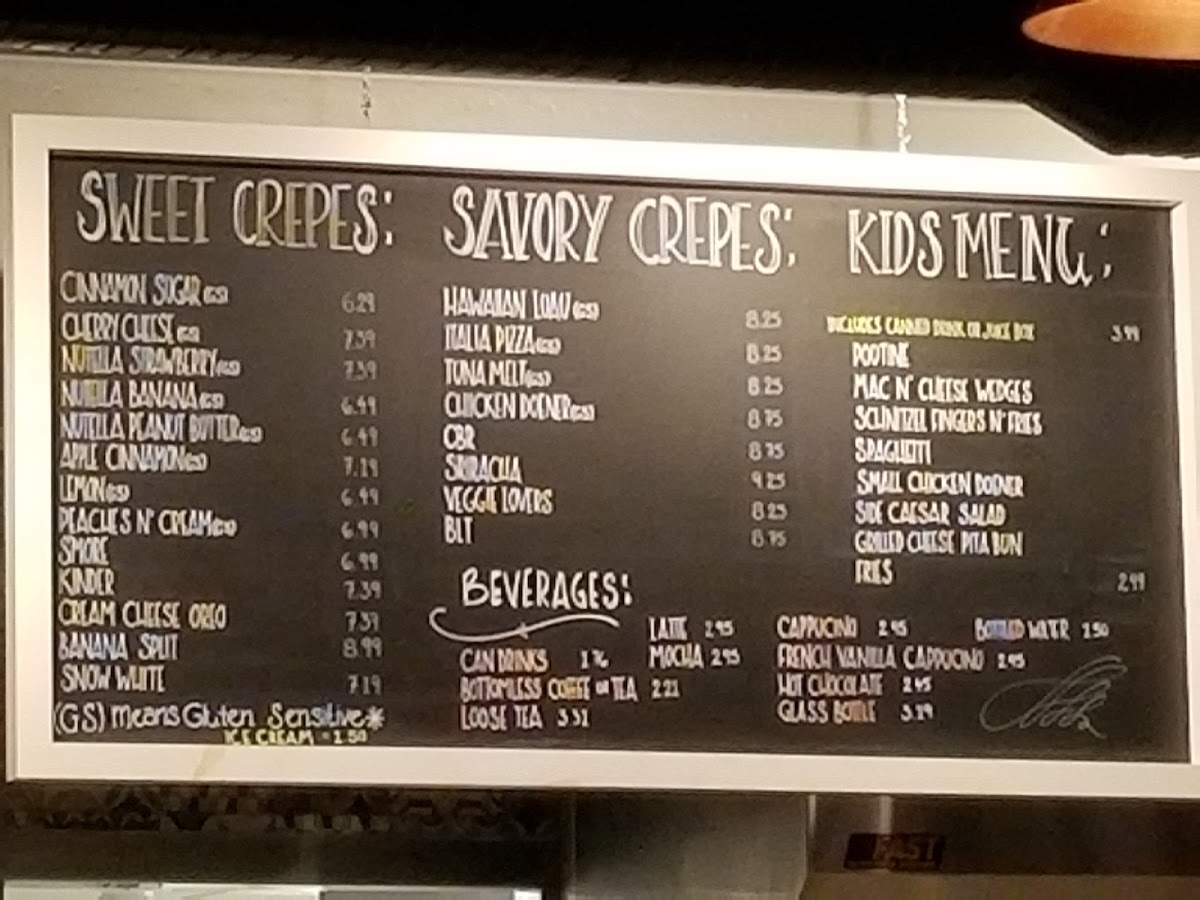 SWEET CREPES:
CINNAMON SUGAR (GS) 6.29
CHERRY CHEESE (GS) 7.39
NUTELLA STRAWBERRY (GS) 7.39
NUTELLA BANANA (GS) 6.99
NUTELLA PEANUT BUTTER (GS) 6.49
APPLE CINNAMON (GS) 7.19
LEMON (GS) 6.49
PEACHES N' CREAM (GS) 6.99
SMORE 6.99
KINDER 7.39
CREAM CHEESE OREO 7.39
BANANA SPLIT 8.99
SNOW WHITE 7.19
(GS) means Gluten Sensitive*
ICE CREAM - 1.50
SAVORY CREPES:
HAWAIIAN LUAU (GS) 8.25
ITALIA PIZZA (GS) 8.25
TUNA MELT (GS) 8.25
CHICKEN DOENER (GS) 8.75
CBR 8.75
SRIRACHA 9.25
VEGGIE LOVERS 8.25
BLT 8.75
KIDS MENU:
INCLUDES CANNED DRINK OR JUICE BOX 3.99
POOTINE
MAC N' CHEESE WEDGES
SCHNITZEL FINGERS N' FRIES
SPAGHETTI
SMALL CHICKEN DOENER
SIDE CAESAR SALAD
GRILLED CHEESE PITA BUN
FRIES 2.99
BEVERAGES:
CAN DRINKS 1.76
BOTTOMLESS COFFEE OR TEA 2.21
LOOSE TEA 3.32
LATTE 2.95
MOCHA 2.95
CAPPUCINO 2.95
FRENCH VANILLA CAPPUCINO 2.95
HOT CHOCOLATE 2.95
GLASS BOTTLE 3.29
BOTTLED WATER 1.50
FAST